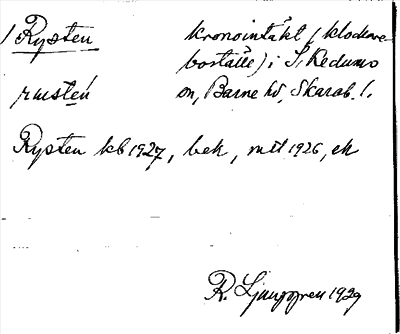 / Rysten kronointäkt (klockare-
boställe) i S. Kedums
rustén sn, Barne hd, Skarab. l.
Rysten kb 1927, bek, mtl 1926, ek
R. Ljunggren 1929